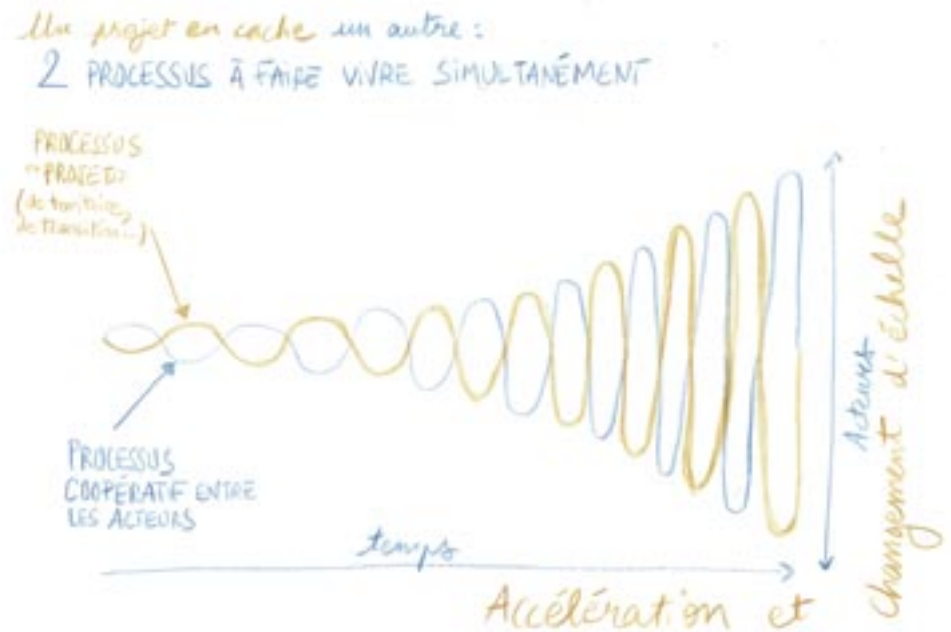 Un projet en cache un autre :
2 PROCESSUS À FAIRE VIVRE SIMULTANÉMENT
PROCESSUS
"PROJET"
(de territoire,
de transition...)
PROCESSUS
COOPÉRATIF ENTRE
LES ACTEURS
temps
Acteurs
Accélération et
changement d'échelle